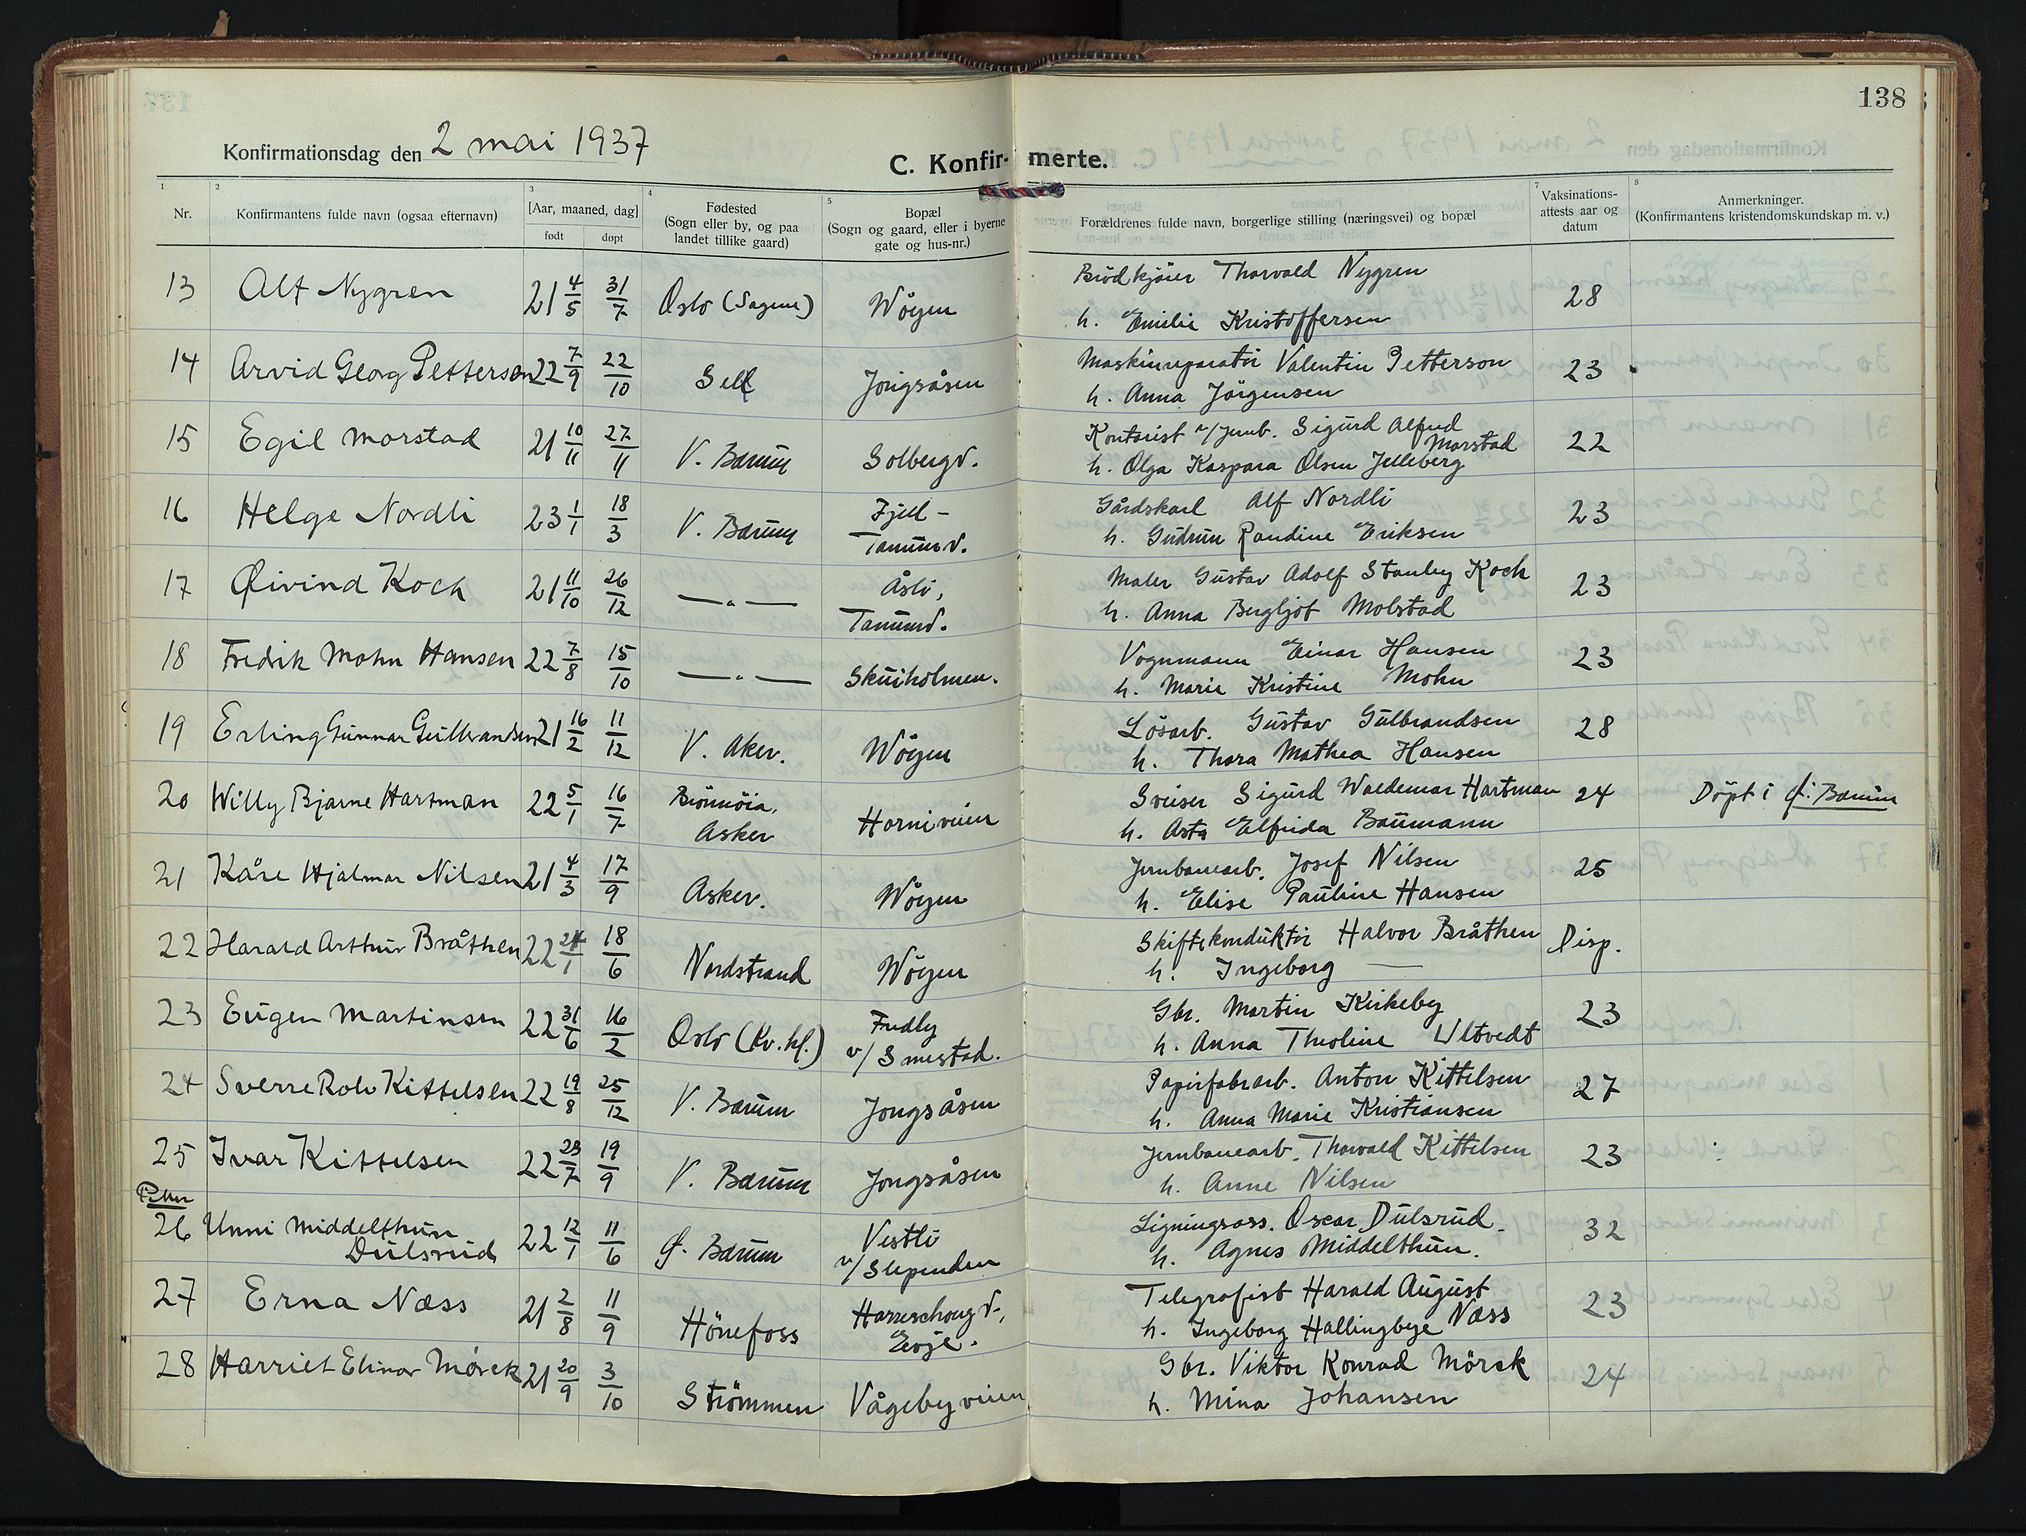 138
Konfirmationsdag den 2 mai 1937
C. Konfir- merte.
1 2 3 4 5 7 8
Nr. Konfirmantens fulde navn (ogsaa efternavn) [Aar, maaned, dag] født døpt Fødested (Sogn eller by, og paa landet tillike gaard) Bopæl (Sogn og gaard, eller i byerne gate og hus-nr.) Forældrenes fulde navn, borgerlige stilling (næringsvei) og bopæl Vaksinations-attests aar og datum Anmerkninger. (Konfirmantens kristendomskundskap m. v.)
13 Alf Nygren 21 4/5 31/7 Oslo (Sagene) Wøyen Brödkjører Thorvald Nygren 28
h. Emilie Kristoffersen
14 Arvid Georg Petterson 22 7/9 22/10 Sell Jongsåsen Maskinreparatör Valentin Petterson 23
h. Anna Jörgensen
15 Egil Morstad 21 10/11 27/11 V. Bærum Solbergv. Kontorist v/Jernb. Sigurd Alfred Morstad 22
h. Olga Kaspara Olsen Jelleberg
16 Helge Nordli 23 1/1 18/3 V. Bærum Fjell - Gårdskarl Alf Nordli 23
Tanumv. h. Gudrun Randine Eriksen
17 Øivind Koch 21 11/10 26/12 — " — Åsli, Maler Gustav Adolf Stanley Koch 23
Tanumv. h. Anna Bergljot Molstad
18 Fredik Mohn Hansen 22 7/8 15/10 — " — Skuiholmen. Vognmann Einar Hansen 23
h. Marie Kristine Mohn
19 Erling Gunnar Gulbrandsen 21 16/2 11/12 V. Aker. Wøyen Løsarb. Gustav Gulbrandsen 28
h. Thora Mathea Hansen
20 Willy Bjarne Hartman 22 5/1 16/7 Brönnöia, Asker Horniveien Sveiser Sigurd Waldemar Hartman 24 Döpt i Ø. Bærum
h. Asta Elfrida Baumann
21 Kåre Hjalmar Nilsen 21 4/3 17/9 Asker. Wøyen Jernbanearb. Josef Nilsen 25
h. Elise Pauline Hansen
22 Harald Arthur Bråthen 22 24/1 18/6 Nordstrand Wøyen Skiftekonduktör Halvor Bråthen Disp.
h. Ingeborg —
23 Eugen Martinsen 22 31/6 16/2 Oslo (Kv. kl.) Fredly Gbr. Martin Kirkeby 23
v/Smestad. h. Anna Theoline Ultvedt
24 Sverre Rolv Kittelsen 22 19/8 25/12 V. Bærum Jongsåsen Papirfabrarb. Anton Kittelsen 27
h. Anna Marie Kristiansen
25 Ivar Kittelsen 22 23/7 19/9 V. Bærum Jongsåsen Jernbanearb. Thorvald Kittelsen 23
h. Anne Nilsen
Piker
26 Unni Middelthun Dulsrud 22 12/1 11/6 Ø. Bærum Vestli Ligningsass. Oscar Dulsrud. 32
v/Slependen h. Agnes Middelthun.
27 Erna Næss 21 2/8 11/9 Hönefoss Harreschougv., Evje. Telegrafist Harald August Næss 23
h. Ingeborg Hallingbye
28 Harriet Elinor Mörck 21 20/9 3/10 Strömmen Vågebyveien Gbr. Viktor Konrad Mörck 24
h. Mina Johansen